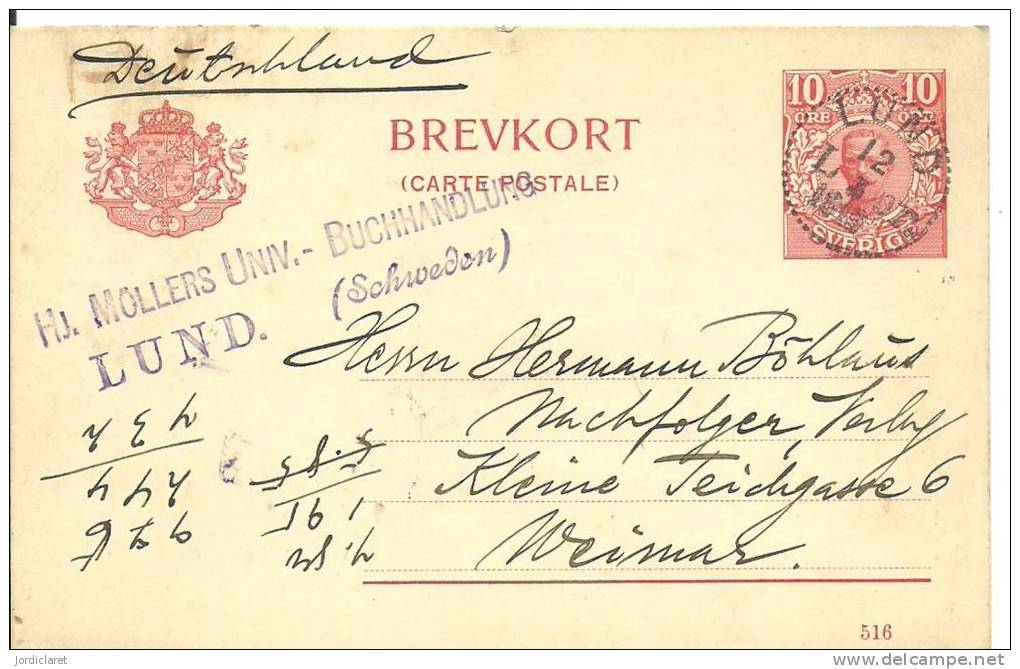 Deutschland
BREVKORT
(CARTE POSTALE)
10 10
ÖRE
SVERIGE
LUND
12
HJ. MÖLLERS UNIV.- BUCHHANDLUNG
LUND. (Schweden)
Herrn Hermann Böhlaus
Nachfolger, Verlag
Kleine Teichgasse 6
Weimar.
516
jordiclaret
delcampe.net